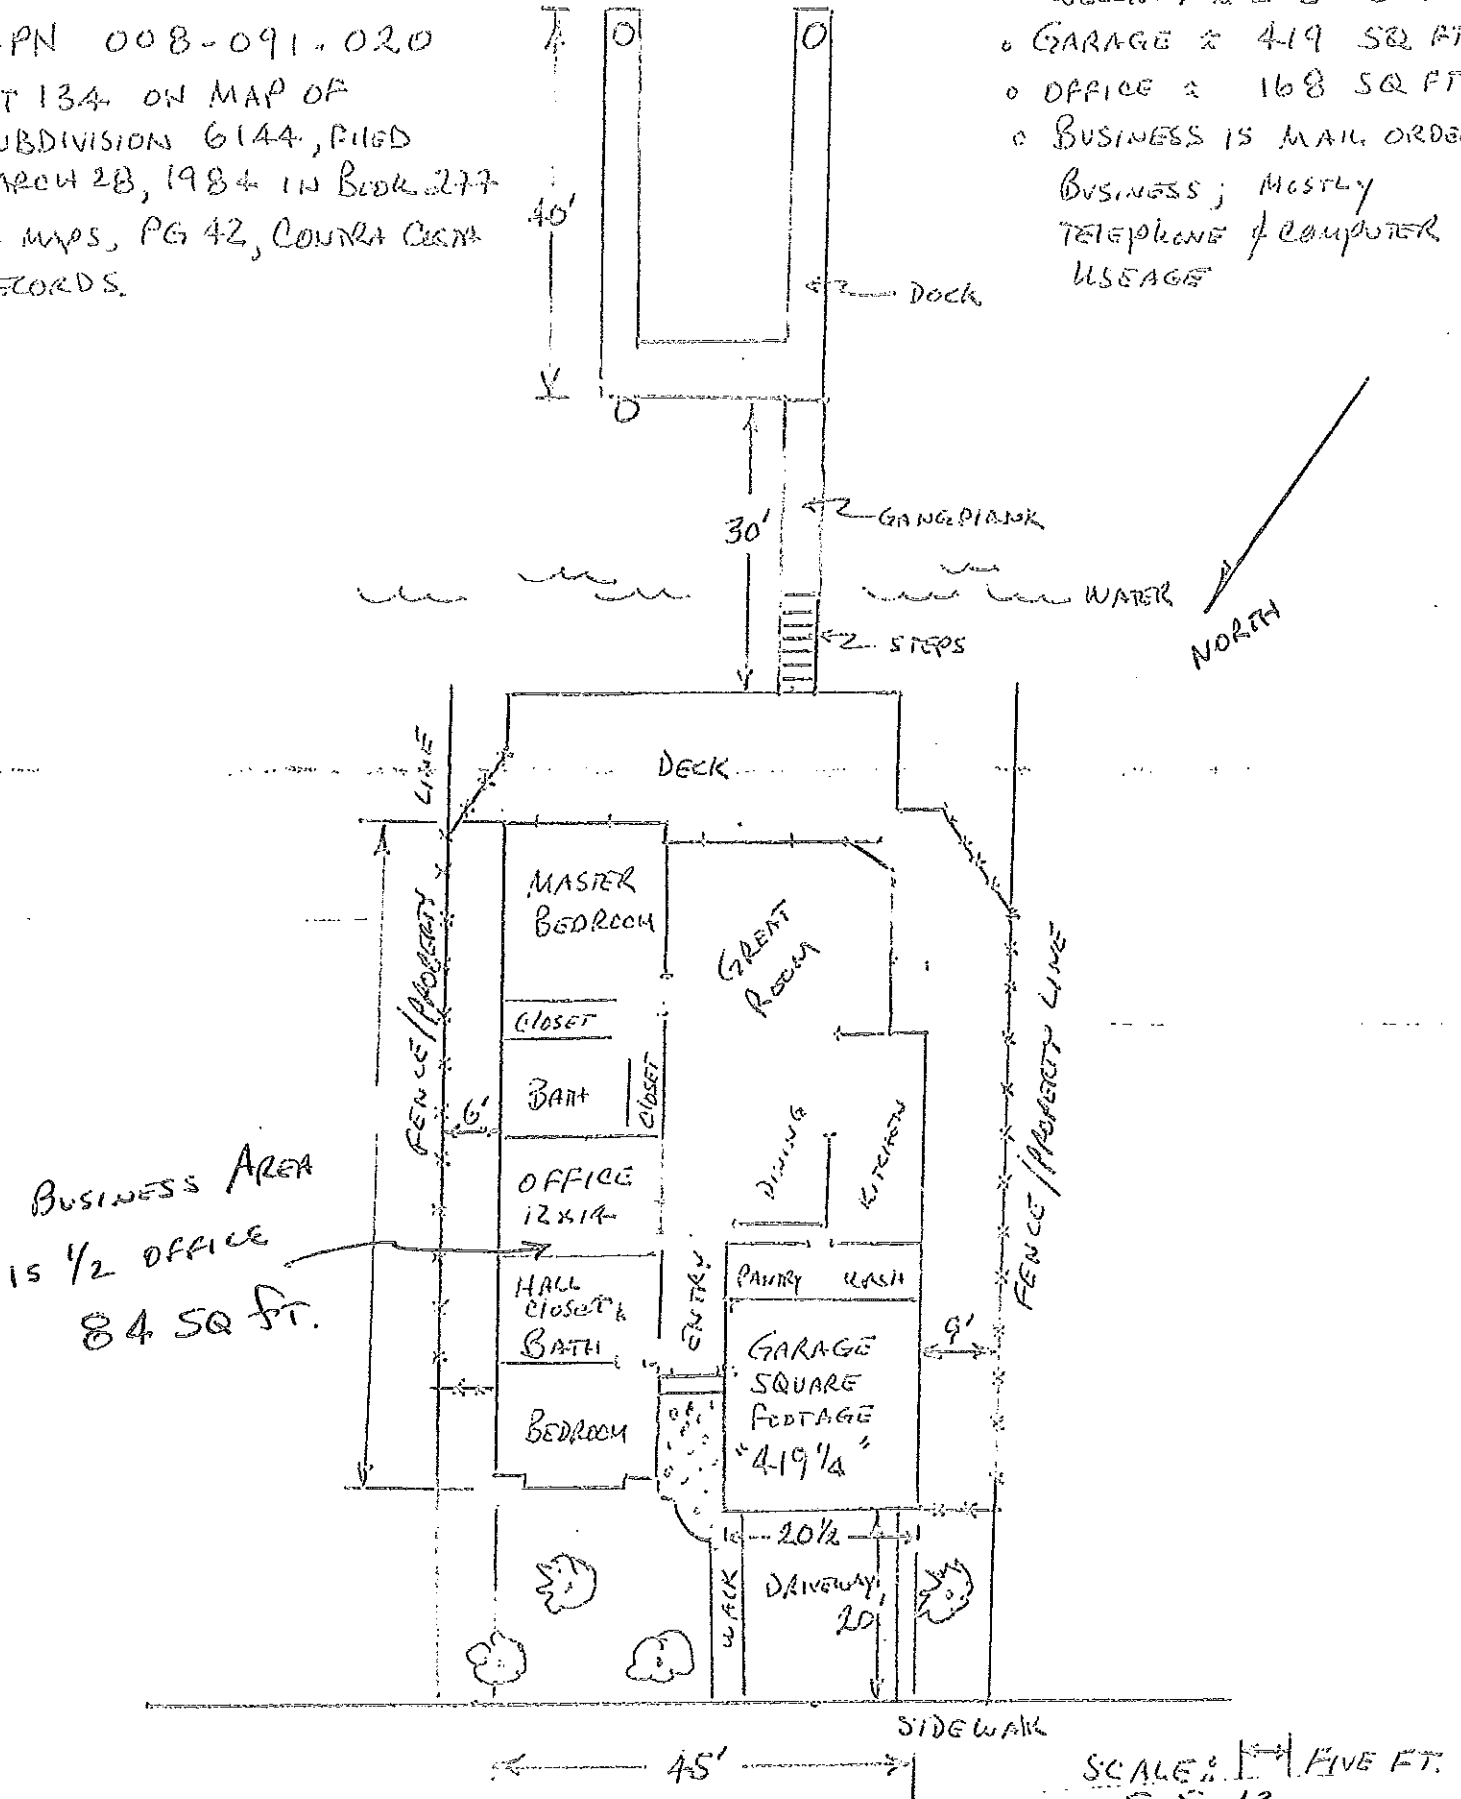 PN 008-091-020
T 134 ON MAP OF
UBDIVISION 6144, FILED
ARCH 28, 1984 IN BOOK 277
MAPS, PG 42, CONTRA COSTA
ECORDS.
• GARAGE ≈ 419 SQ FT
• OFFICE ≈ 168 SQ FT
• BUSINESS IS MAIL ORDE
BUSINESS; MOSTLY
TELEPHONE & COMPUTER
USEAGE
40'
DOCK
30'
GANGPLANK
WATER
STEPS
NORTH
DECK
FENCE/PROPERTY LINE
MASTER
BEDROOM
GREAT
ROOM
CLOSET
BATH
CLOSET
6'
FENCE/PROPERTY LINE
DINING
KITCHEN
OFFICE
12x14
BUSINESS AREA
IS 1/2 OFFICE
84 SQ FT.
HALL
CLOSET &
BATH
ENTRY
PANTRY WASH
9'
GARAGE
SQUARE
FOOTAGE
"419 1/4"
BEDROOM
20 1/2
WALK
DRIVEWAY
20'
SIDEWALK
45'
SCALE: FIVE FT.